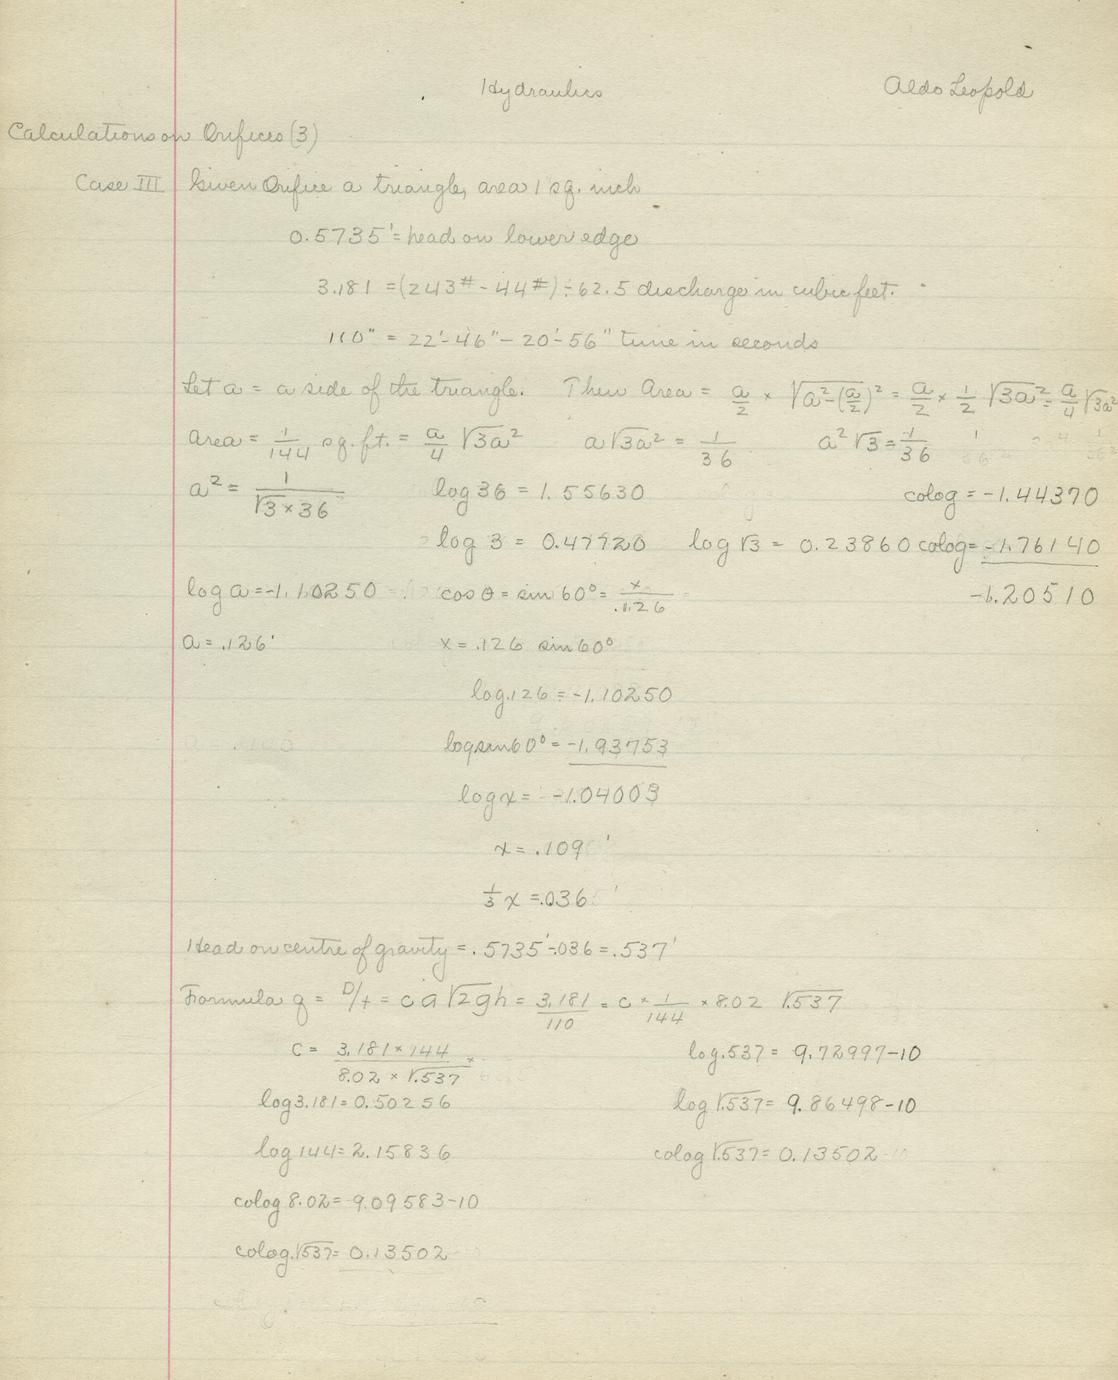 Hydraulics Aldo Leopold
Calculations on Orifices (3)
Case III Given Orifice a triangle, area 1 sq. inch
0.5735' = head on lower edge
3.181 = (243# - 44#) ÷ 62.5 discharge in cubic feet.
110" = 22'-46" - 20'-56" time in seconds
Let a = a side of the triangle. Then Area = a/2 × √a²-(a/2)² = a/2 × 1/2 √3a² = a/4 √3a²
area = 1/144 sq. ft. = a/4 √3a² a√3a² = 1/36 a²√3 = 1/36
a² = 1/√3×36 log 36 = 1.55630 colog = -1.44370
log 3 = 0.47720 log √3 = 0.23860 colog = -1.76140
log a = -1.10250 cos θ = sin 60° = x/.126 -1.20510
a = .126' x = .126 sin 60°
log .126 = -1.10250
log sin 60° = -1.93753
log x = -1.04003
x = .109'
1/3 x = .036'
Head on centre of gravity = .5735' - .036 = .537'
Formula q = D/t = c a √2gh = 3.181/110 = c × 1/144 × 8.02 √.537
c = 3.181 × 144 / 8.02 × √.537 log .537 = 9.72997-10
log 3.181 = 0.50256 log √.537 = 9.86498-10
log 144 = 2.15836 colog √.537 = 0.13502
colog 8.02 = 9.09583-10
colog √.537 = 0.13502